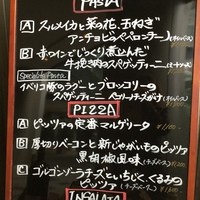 PASTA
A スルメイカと菜の花、玉ねぎ
アンチョビのペペロンチーノ
B 赤ワインでじっくり煮込んだ
牛挽き肉のスパゲッティーニ
Specialite Pasta
イベリコ豚のラグーとブロッコリーの
スパゲッティーニ ペコリーノチーズがけ
PIZZA
A ピッツァの定番マルゲリータ
B 厚切りベーコンと新じゃがいものピッツァ
黒胡椒風味
C ゴルゴンゾーラチーズといちじく、くるみの
ピッツァ
INSALATA